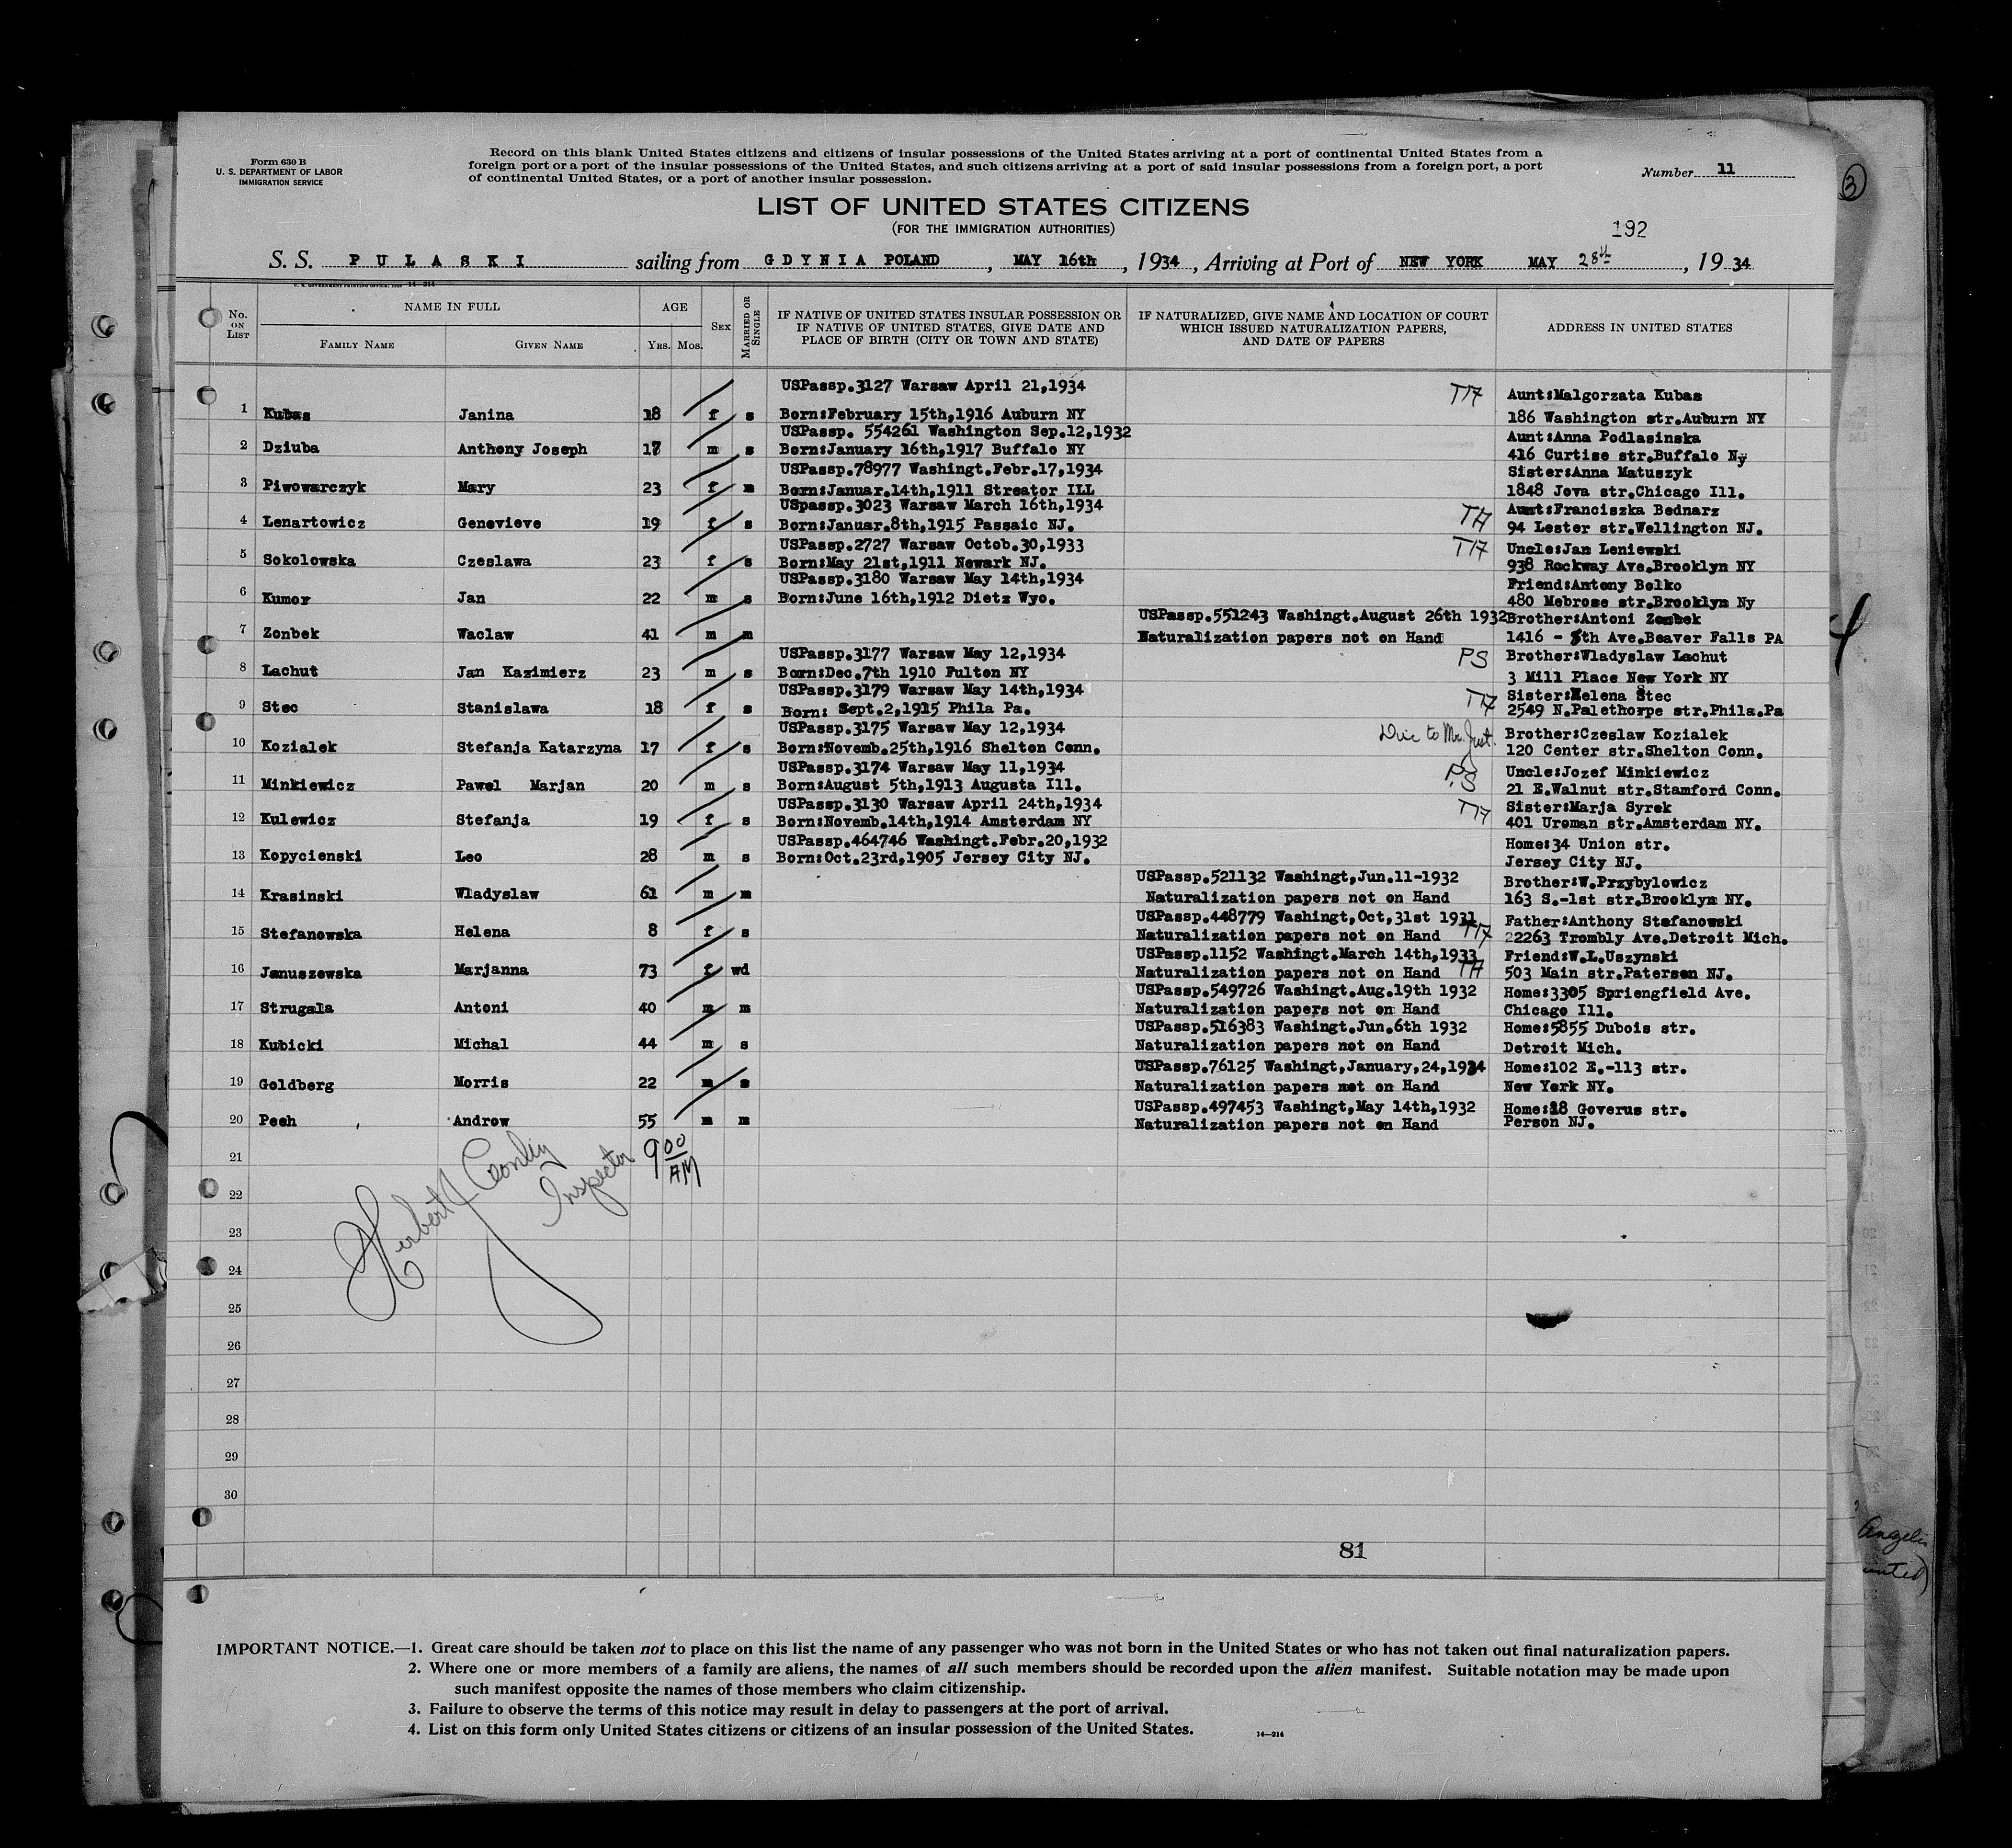 Form 630 B
U. S. DEPARTMENT OF LABOR
IMMIGRATION SERVICE
Record on this blank United States citizens and citizens of insular possessions of the United States arriving at a port of continental United States from a
foreign port or a port of the insular possessions of the United States, and such citizens arriving at a port of said insular possessions from a foreign port, a port
of continental United States, or a port of another insular possession.
Number 11
3
LIST OF UNITED STATES CITIZENS
(FOR THE IMMIGRATION AUTHORITIES)
192
S. S. PULASKI sailing from GDYNIA POLAND, MAY 16th, 1934, Arriving at Port of NEW YORK MAY 28th, 1934
No. ON LIST
NAME IN FULL
FAMILY NAME GIVEN NAME
AGE
YRS. MOS.
SEX
MARRIED OR SINGLE
IF NATIVE OF UNITED STATES INSULAR POSSESSION OR
IF NATIVE OF UNITED STATES, GIVE DATE AND
PLACE OF BIRTH (CITY OR TOWN AND STATE)
IF NATURALIZED, GIVE NAME AND LOCATION OF COURT
WHICH ISSUED NATURALIZATION PAPERS,
AND DATE OF PAPERS
ADDRESS IN UNITED STATES
USPassp.3127 Warsaw April 21,1934 T17 Aunt:Malgorzata Kubas
1 Kubas Janina 18 f s Born:February 15th,1916 Auburn NY 186 Washington str.Auburn NY
USPassp. 554261 Washington Sep.12,1932 Aunt:Anna Podlasinska
2 Dziuba Anthony Joseph 17 m s Born:January 16th,1917 Buffalo NY 416 Curtise str.Buffalo Ny
USPassp.78977 Washingt.Febr.17,1934 Sister:Anna Matuszyk
3 Piwowarczyk Mary 23 f m Born:Januar.14th,1911 Streator ILL 1848 Jova str.Chicago Ill.
USpassp.3023 Warsaw March 16th,1934 Aunt:Franciszka Bednarz
4 Lenartowicz Genevieve 19 f s Born:Januar.8th,1915 Passaic NJ. T17 94 Lester str.Wellington NJ.
USPassp.2727 Warsaw Octob.30,1933 T17 Uncle:Jan Leniewski
5 Sokolowska Czeslawa 23 f s Born:May 21st,1911 Newark NJ. 938 Rockway Ave.Brooklyn NY
USPassp.3180 Warsaw May 14th,1934 Friend:Antony Bolko
6 Kumor Jan 22 m s Born:June 16th,1912 Dietz Wyo. 480 Mebrose str.Brooklyn Ny
USPassp.551243 Washingt.August 26th 1932 Brother:Antoni Zonbek
7 Zonbek Waclaw 41 m m Naturalization papers not on Hand 1416 - 8th Ave.Beaver Falls PA
USPassp.3177 Warsaw May 12,1934 PS Brother:Wladyslaw Lachut
8 Lachut Jan Kazimierz 23 m s Born:Dec.7th 1910 Fulton NY 3 Mill Place New York NY
USPassp.3179 Warsaw May 14th,1934 T17 Sister:Helena Stec
9 Stec Stanislawa 18 f s Born: Sept.2,1915 Phila Pa. 2549 N.Palethorpe str.Phila.Pa
USPassp.3175 Warsaw May 12,1934 Due to Mr. Brother:Czeslaw Kozialek
10 Kozialek Stefanja Katarzyna 17 f s Born:Novemb.25th,1916 Shelton Conn. 120 Center str.Shelton Conn.
USPassp.3174 Warsaw May 11,1934 P.S Uncle:Jozef Minkiewicz
11 Minkiewicz Pawel Marjan 20 m s Born:August 5th,1913 Augusta Ill. 21 E.Walnut str.Stamford Conn.
USPassp.3130 Warsaw April 24th,1934 T17 Sister:Marja Syrek
12 Kulewicz Stefanja 19 f s Born:Novemb.14th,1914 Amsterdam NY 401 Uroman str.Amsterdam NY.
USPassp.464746 Washingt.Febr.20,1932 Home:34 Union str.
13 Kopycienski Leo 28 m s Born:Oct.23rd,1905 Jersey City NJ. Jersey City NJ.
USPassp.521132 Washingt,Jun.11-1932 Brother:W.Przybylowicz
14 Krasinski Wladyslaw 61 m m Naturalization papers not on Hand 163 S.-1st str.Brooklyn NY.
USPassp.448779 Washingt,Oct,31st 1931 Father:Anthony Stefanowski
15 Stefanowska Helena 8 f s Naturalization papers not on Hand T17 22263 Trombly Ave.Detroit Mich.
USPassp.1152 Washingt.March 14th,1933 Friend:W.L.Uszynski
16 Januszewska Marjanna 73 f wd Naturalization papers not on Hand T17 503 Main str.Paterson NJ.
USPassp.549726 Washingt.Aug.19th 1932 Home:3305 Spriengfield Ave.
17 Strugala Antoni 40 m m Naturalization papers not on Hand Chicago Ill.
USPassp.516383 Washingt.Jun.6th 1932 Home:5855 Dubois str.
18 Kubicki Michal 44 m s Naturalization papers not on Hand Detroit Mich.
USPassp.76125 Washingt,January,24,1934 Home:102 E.-113 str.
19 Goldberg Morris 22 m s Naturalization papers not on Hand New York NY.
USPassp.497453 Washingt,May 14th,1932 Home:18 Goverus str.
20 Pech Androw 55 m m Naturalization papers not on Hand Person NJ.
21
9 00 AM
Herbert J Inspector
22
23
24
25
26
27
28
29
30
81
IMPORTANT NOTICE.—1. Great care should be taken not to place on this list the name of any passenger who was not born in the United States or who has not taken out final naturalization papers.
2. Where one or more members of a family are aliens, the names of all such members should be recorded upon the alien manifest. Suitable notation may be made upon
such manifest opposite the names of those members who claim citizenship.
3. Failure to observe the terms of this notice may result in delay to passengers at the port of arrival.
4. List on this form only United States citizens or citizens of an insular possession of the United States.
14—214